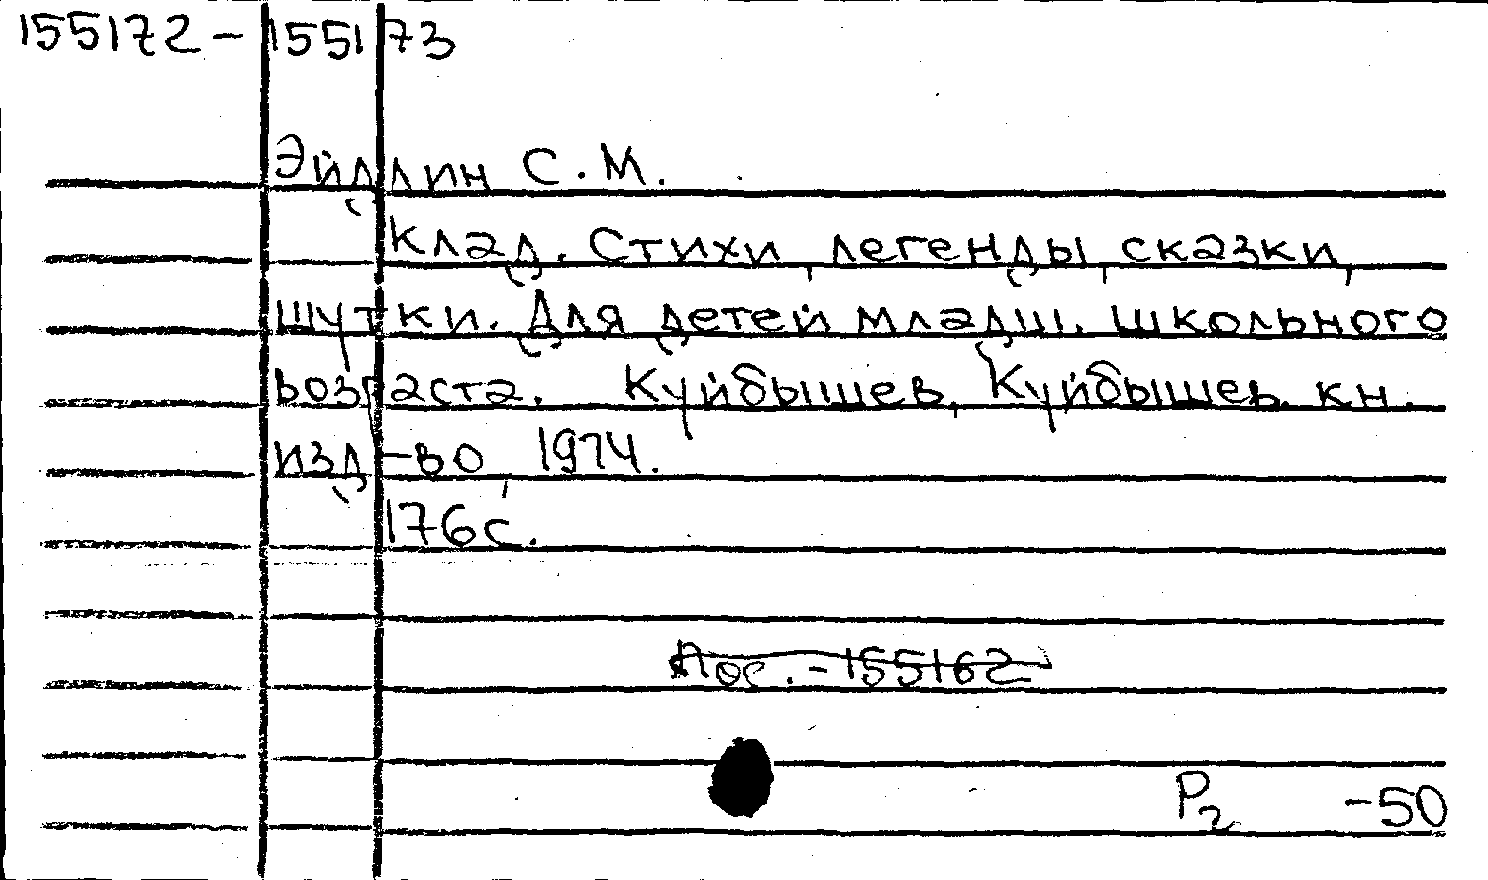 155172-155173
Эйдлин С.М.
Клад. Стихи, легенды, сказки,
шутки. Для детей младш. школьного
возраста. Куйбышев, Куйбышев. кн.
изд-во, 1974.
176 с.
-155162
Р2 -50